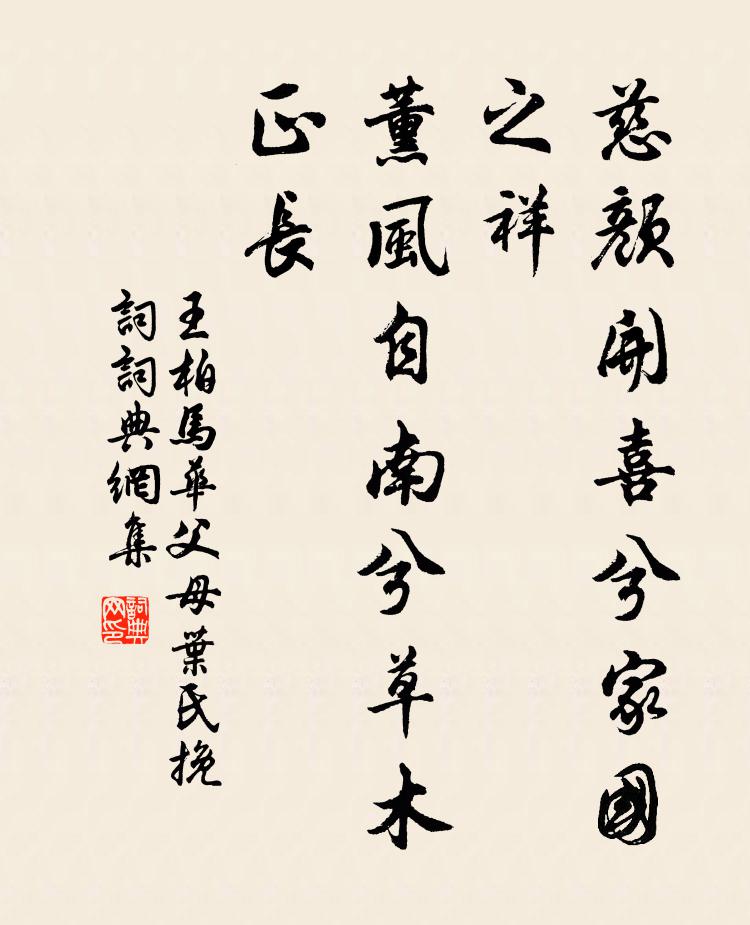 慈顏開喜兮家國
之祥
薰風自南兮草木
正長
王柏馬華父母葉氏挽
詞詞典網集
詞典
网印